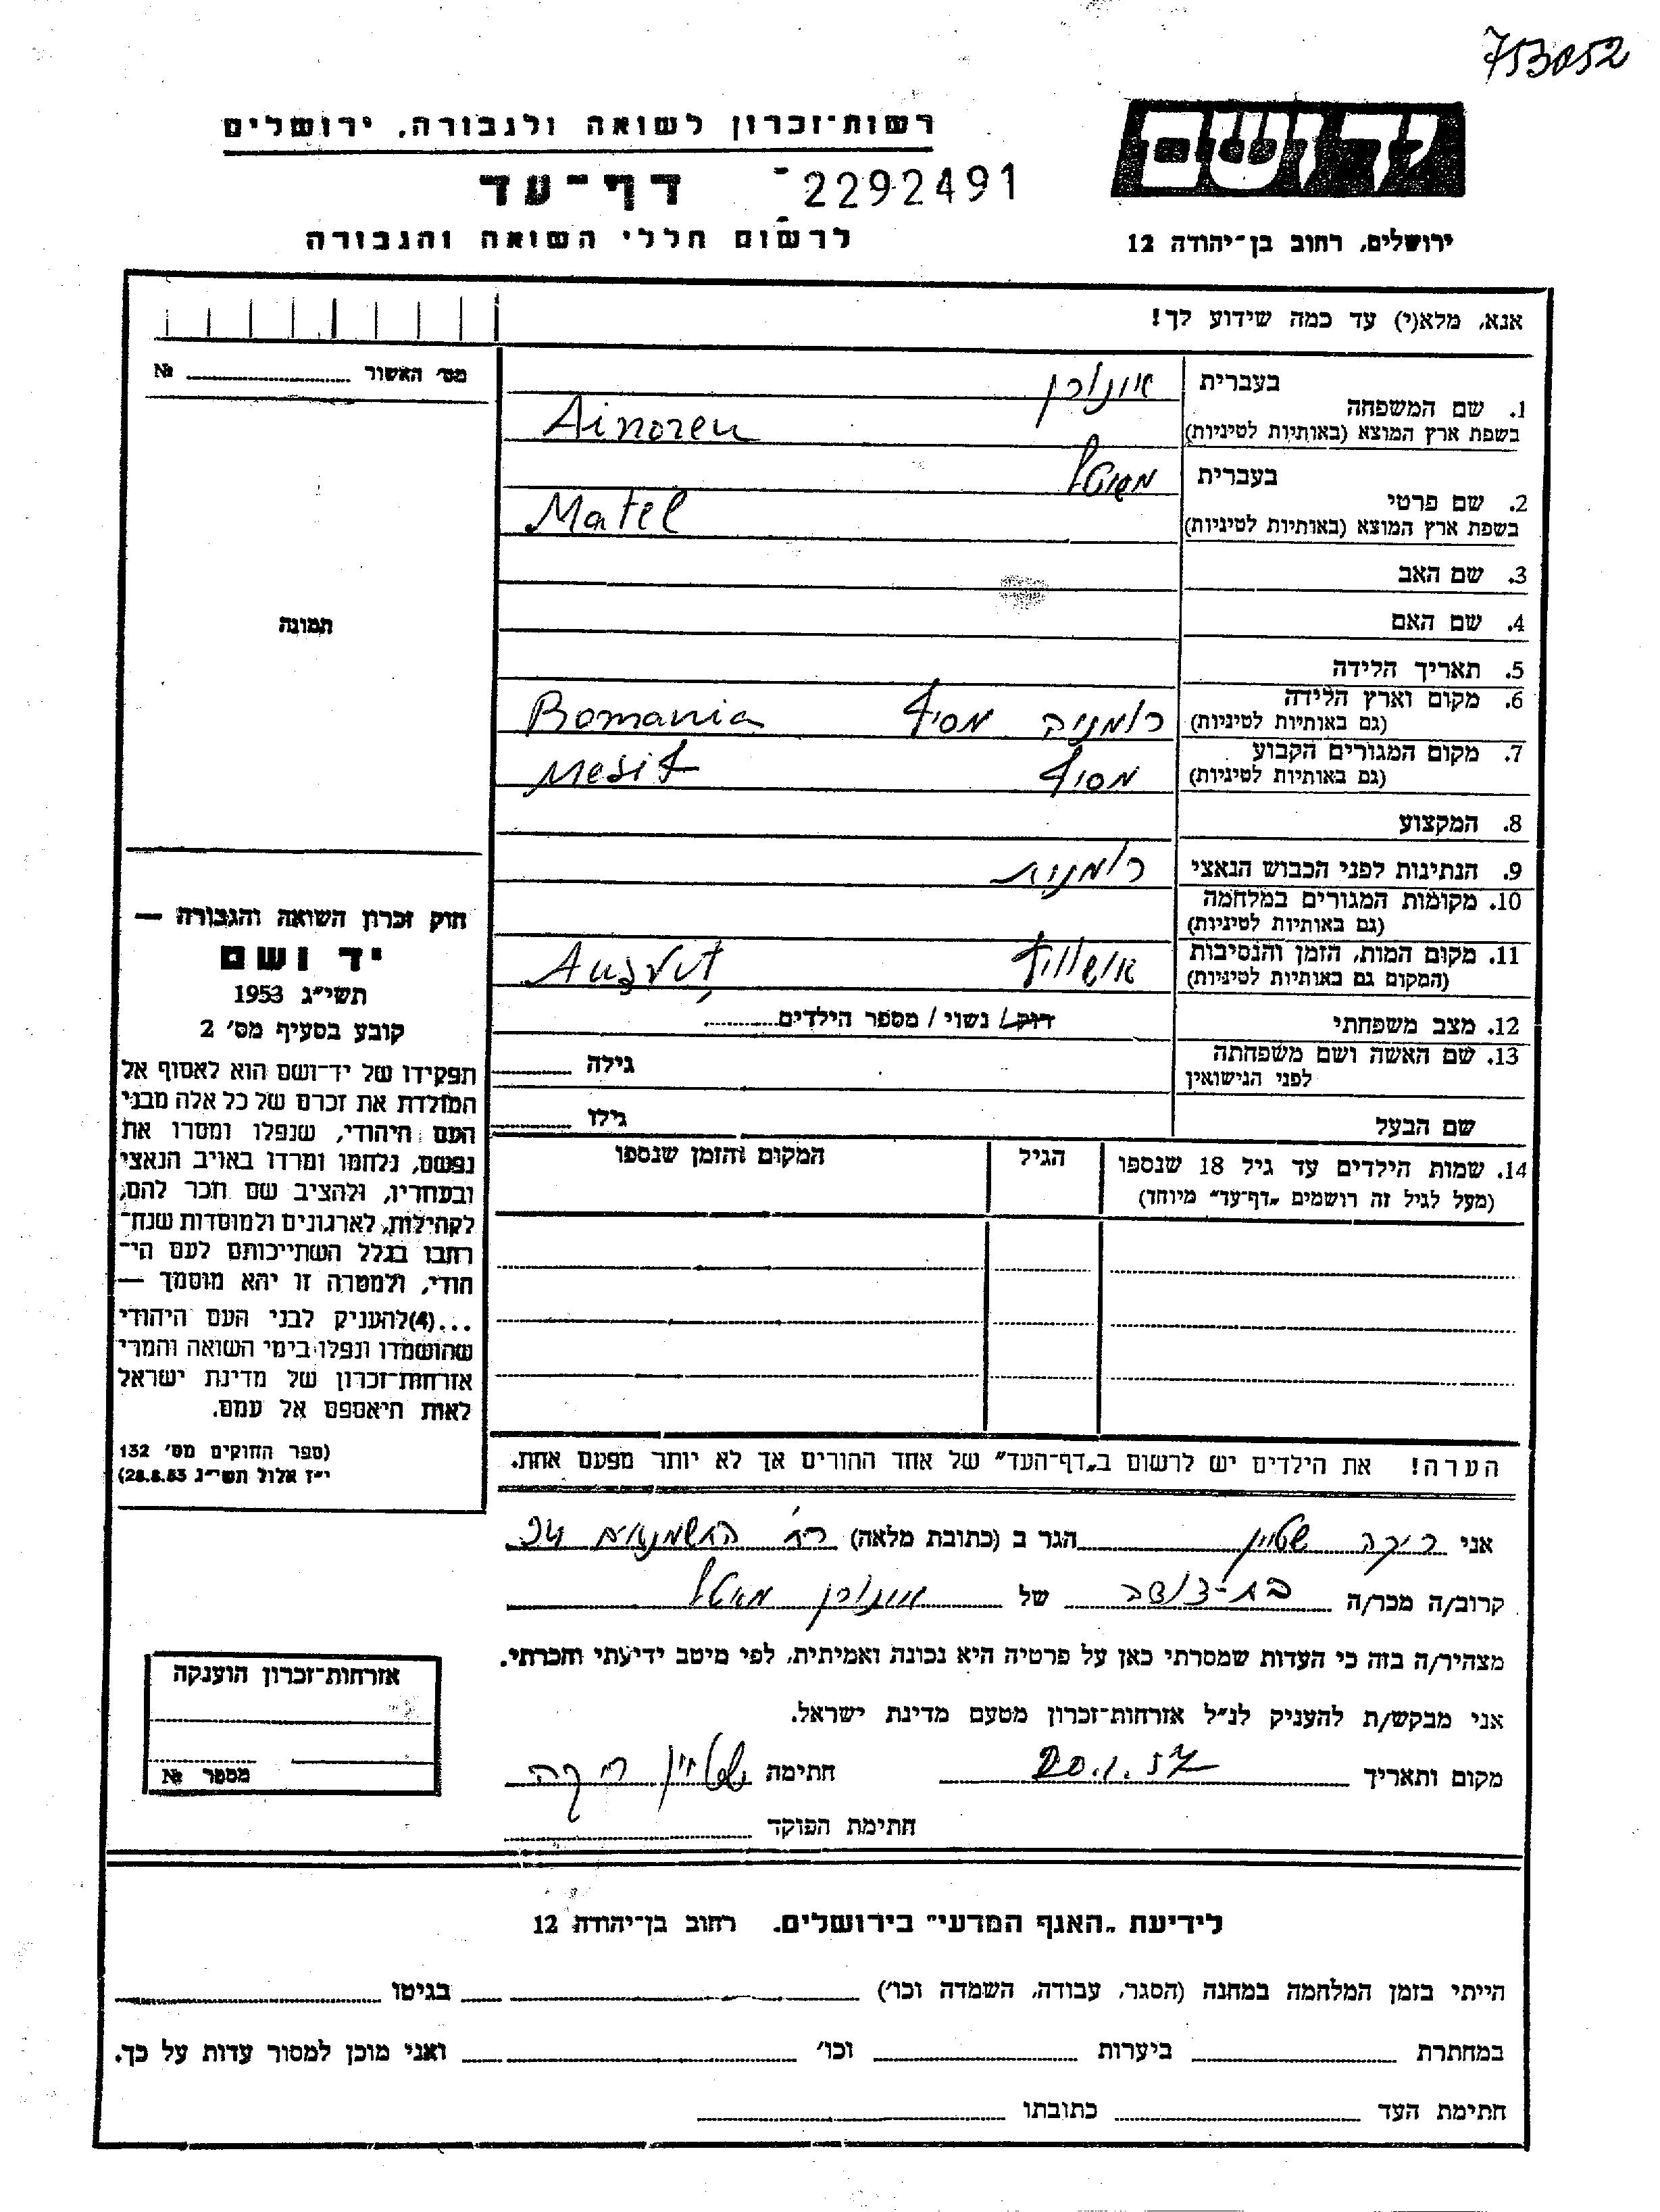 753052
יד ושם
רשות־זכרון לשואה ולגבורה, ירושלים
דף־עד 2292491
ירושלים, רחוב בן־יהודה 12
לרשום חללי השואה והגבורה
אנא, מלא(י) עד כמה שידוע לך!
מס׳ האשור №
1. שם המשפחה
בעברית
בשפת ארץ המוצא (באותיות לטיניות) Ainoren
2. שם פרטי
בעברית
בשפת ארץ המוצא (באותיות לטיניות) Matel
3. שם האב
4. שם האם
תמונה
5. תאריך הלידה
6. מקום וארץ הלידה
(גם באותיות לטיניות) רומניה מסיף Romania
7. מקום המגורים הקבוע
(גם באותיות לטיניות) מסיף Mesif
8. המקצוע
9. הנתינות לפני הכבוש הנאצי רומנית
10. מקומות המגורים במלחמה
(גם באותיות לטיניות)
11. מקום המות, הזמן והנסיבות
(המקום גם באותיות לטיניות) Auşvuţ
12. מצב משפחתי רוק/ נשוי / מספר הילדים
13. שם האשה ושם משפחתה
לפני הנישואין גילה
שם הבעל גילו
14. שמות הילדים עד גיל 18 שנספו
(מעל לגיל זה רושמים „דף־עד״ מיוחד)
הגיל
המקום והזמן שנספו
חוק זכרון השואה והגבורה —
יד ושם
תשי״ג 1953
קובע בסעיף מס׳ 2
תפקידו של יד־ושם הוא לאסוף אל
המולדת את זכרם של כל אלה מבני
העם היהודי, שנפלו ומסרו את
נפשם, נלחמו ומרדו באויב הנאצי
ובעוזריו, ולהציב שם וזכר להם,
לקהילות, לארגונים ולמוסדות שנח־
רבו בגלל השתייכותם לעם הי־
הודי, ולמטרה זו יהא מוסמך —
...(4)להעניק לבני העם היהודי
שהושמדו ונפלו בימי השואה והמרי
אזרחות־זכרון של מדינת ישראל
לאות היאספם אל עמם.
(ספר החוקים מס׳ 132
י״ז אלול תשי״ג 28.8.53)
הערה! את הילדים יש לרשום ב„דף־העד״ של אחד ההורים אך לא יותר מפעם אחת.
אני ריקה שטיין הגר ב (כתובת מלאה) רח׳ החשמונאים
קרוב/ה מכר/ה בת-דודה של
מצהיר/ה בזה כי העדות שמסרתי כאן על פרטיה היא נכונה ואמיתית, לפי מיטב ידיעתי והכרתי.
אני מבקש/ת להעניק לנ״ל אזרחות־זכרון מטעם מדינת ישראל.
מקום ותאריך 20.1.57 חתימת שטיין ריקה
חתימת הפוקד
אזרחות־זכרון הוענקה
מספר №
לידיעת „האגף המדעי״ בירושלים. רחוב בן־יהודה 12
הייתי בזמן המלחמה במחנה (הסגר, עבודה, השמדה וכו׳) בגיטו
במחתרת ביערות וכו׳ ואני מוכן למסור עדות על כך.
חתימת העד כתובתו